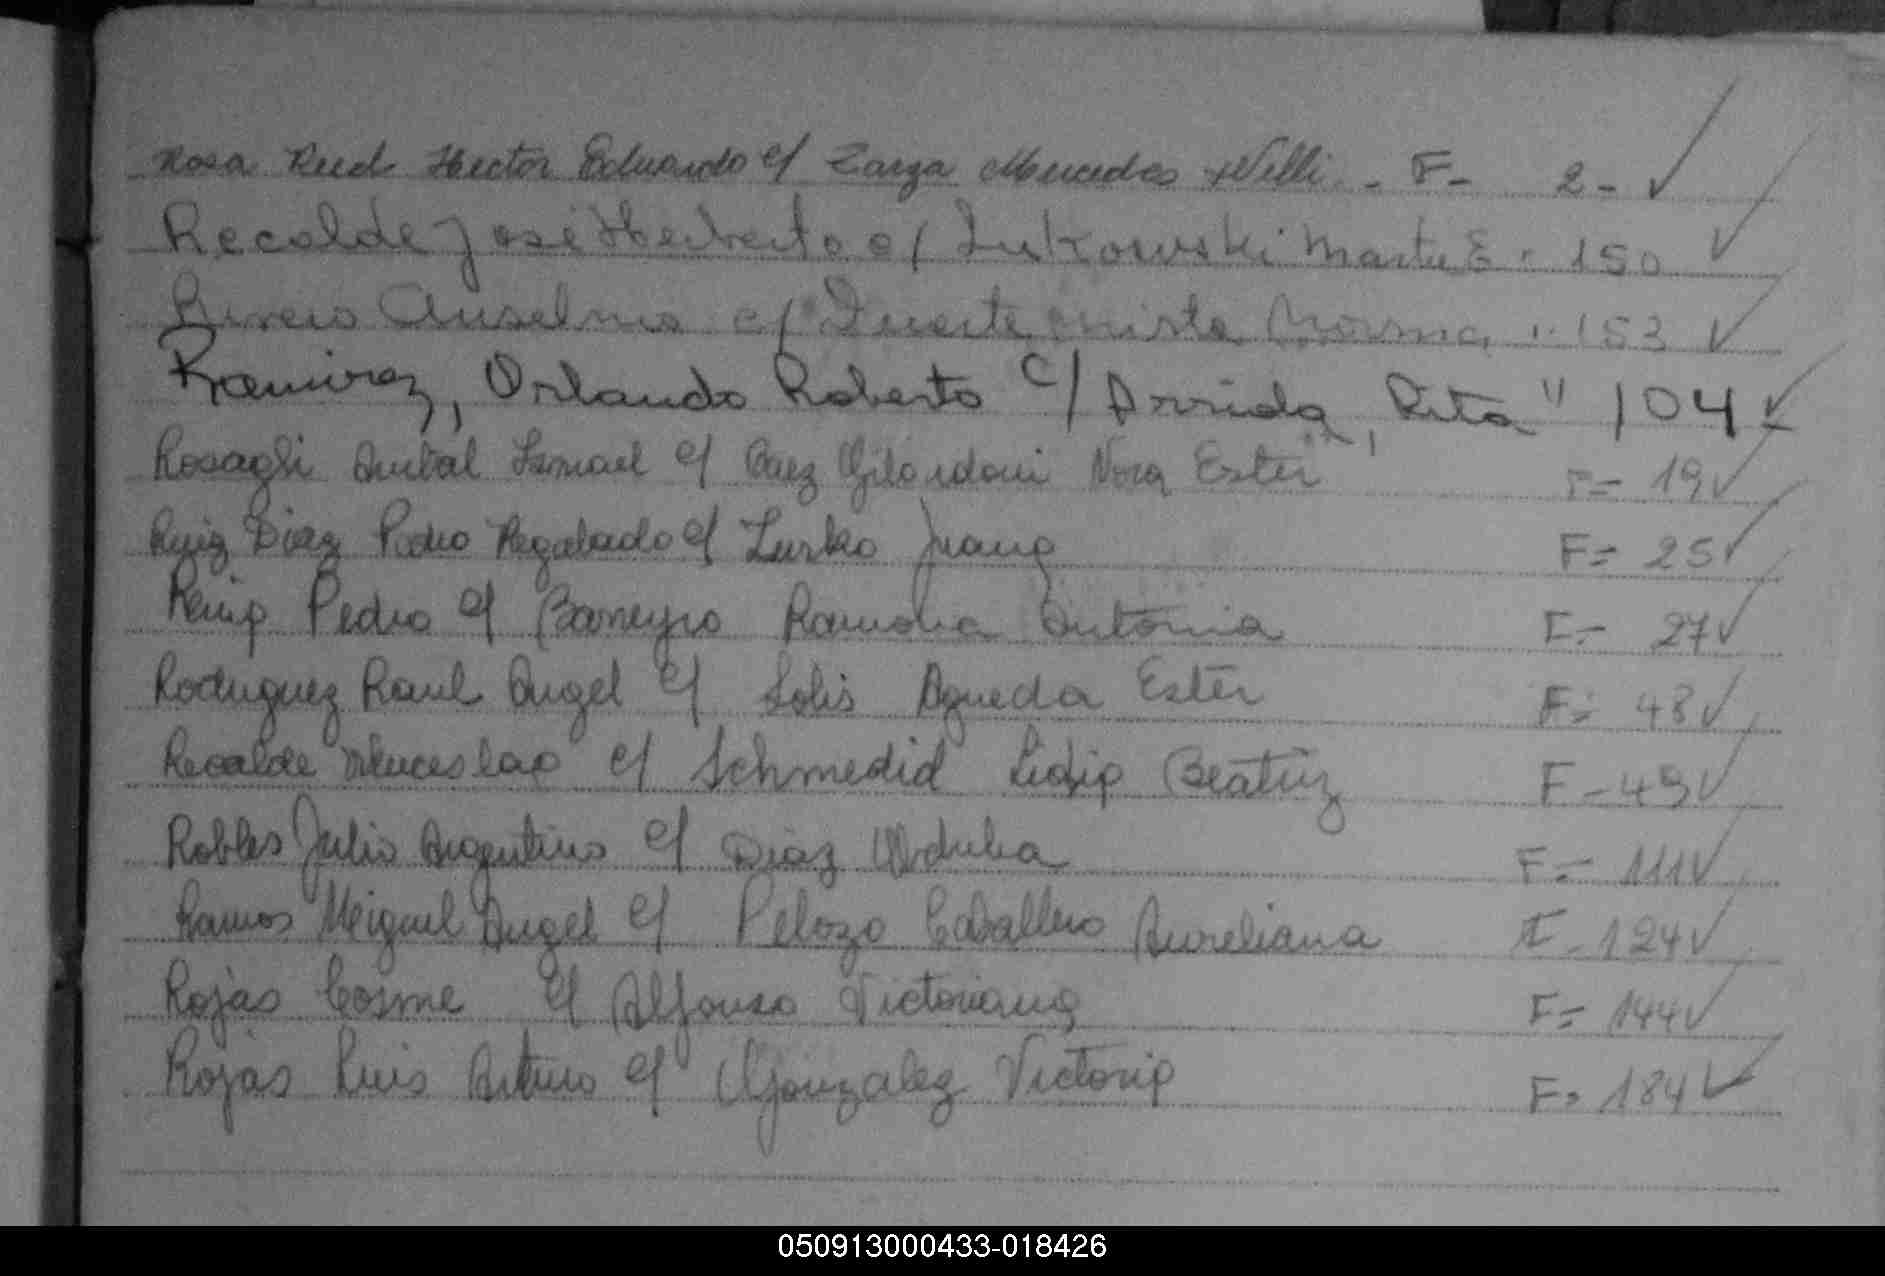 Rosa Reed Hector Eduardo c/ Zarza Mercedes Nelli - F- 2-
Recalde José Herberto c/ Lukowski Marta E " 150
Rivero Anselmo c/ Duarte Mirta Norma " 153
Ramirez, Orlando Roberto c/ Arrida, Rita " 104
Rosagli Anibal Ismael c/ Baez Gilardoni Nora Ester F= 19
Ruiz Diaz Pedro Regalado c/ Zurko Juana F= 25
Pedro c/ Barreyro Ramona Antonia F= 27
Rodriguez Raul Angel c/ Solis Agueda Ester F= 48
Recalde Wenceslao c/ Schmedid Lidia Beatriz F-49
Robles Julio Argentino c/ Diaz Obdulia F= 111
Ramos Miguel Angel c/ Pelozo Caballero Aureliana F-124
Rojas Cosme c/ Alfonso Victoriana F= 144
Rojas Luis Arturo c/ Gonzalez Victoria F= 184
050913000433-018426